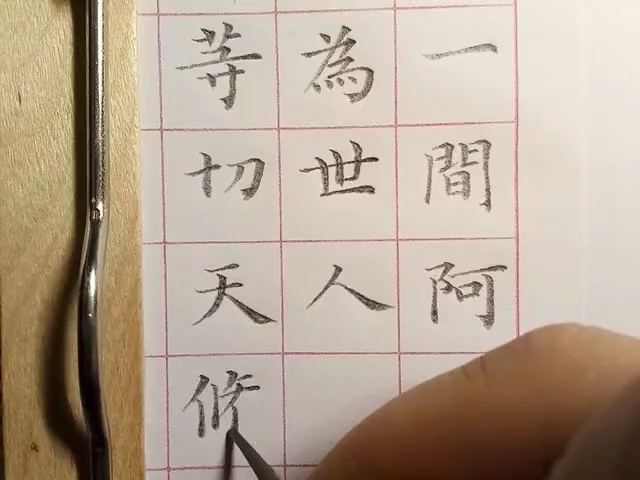 等為一
切世間
天人阿
修